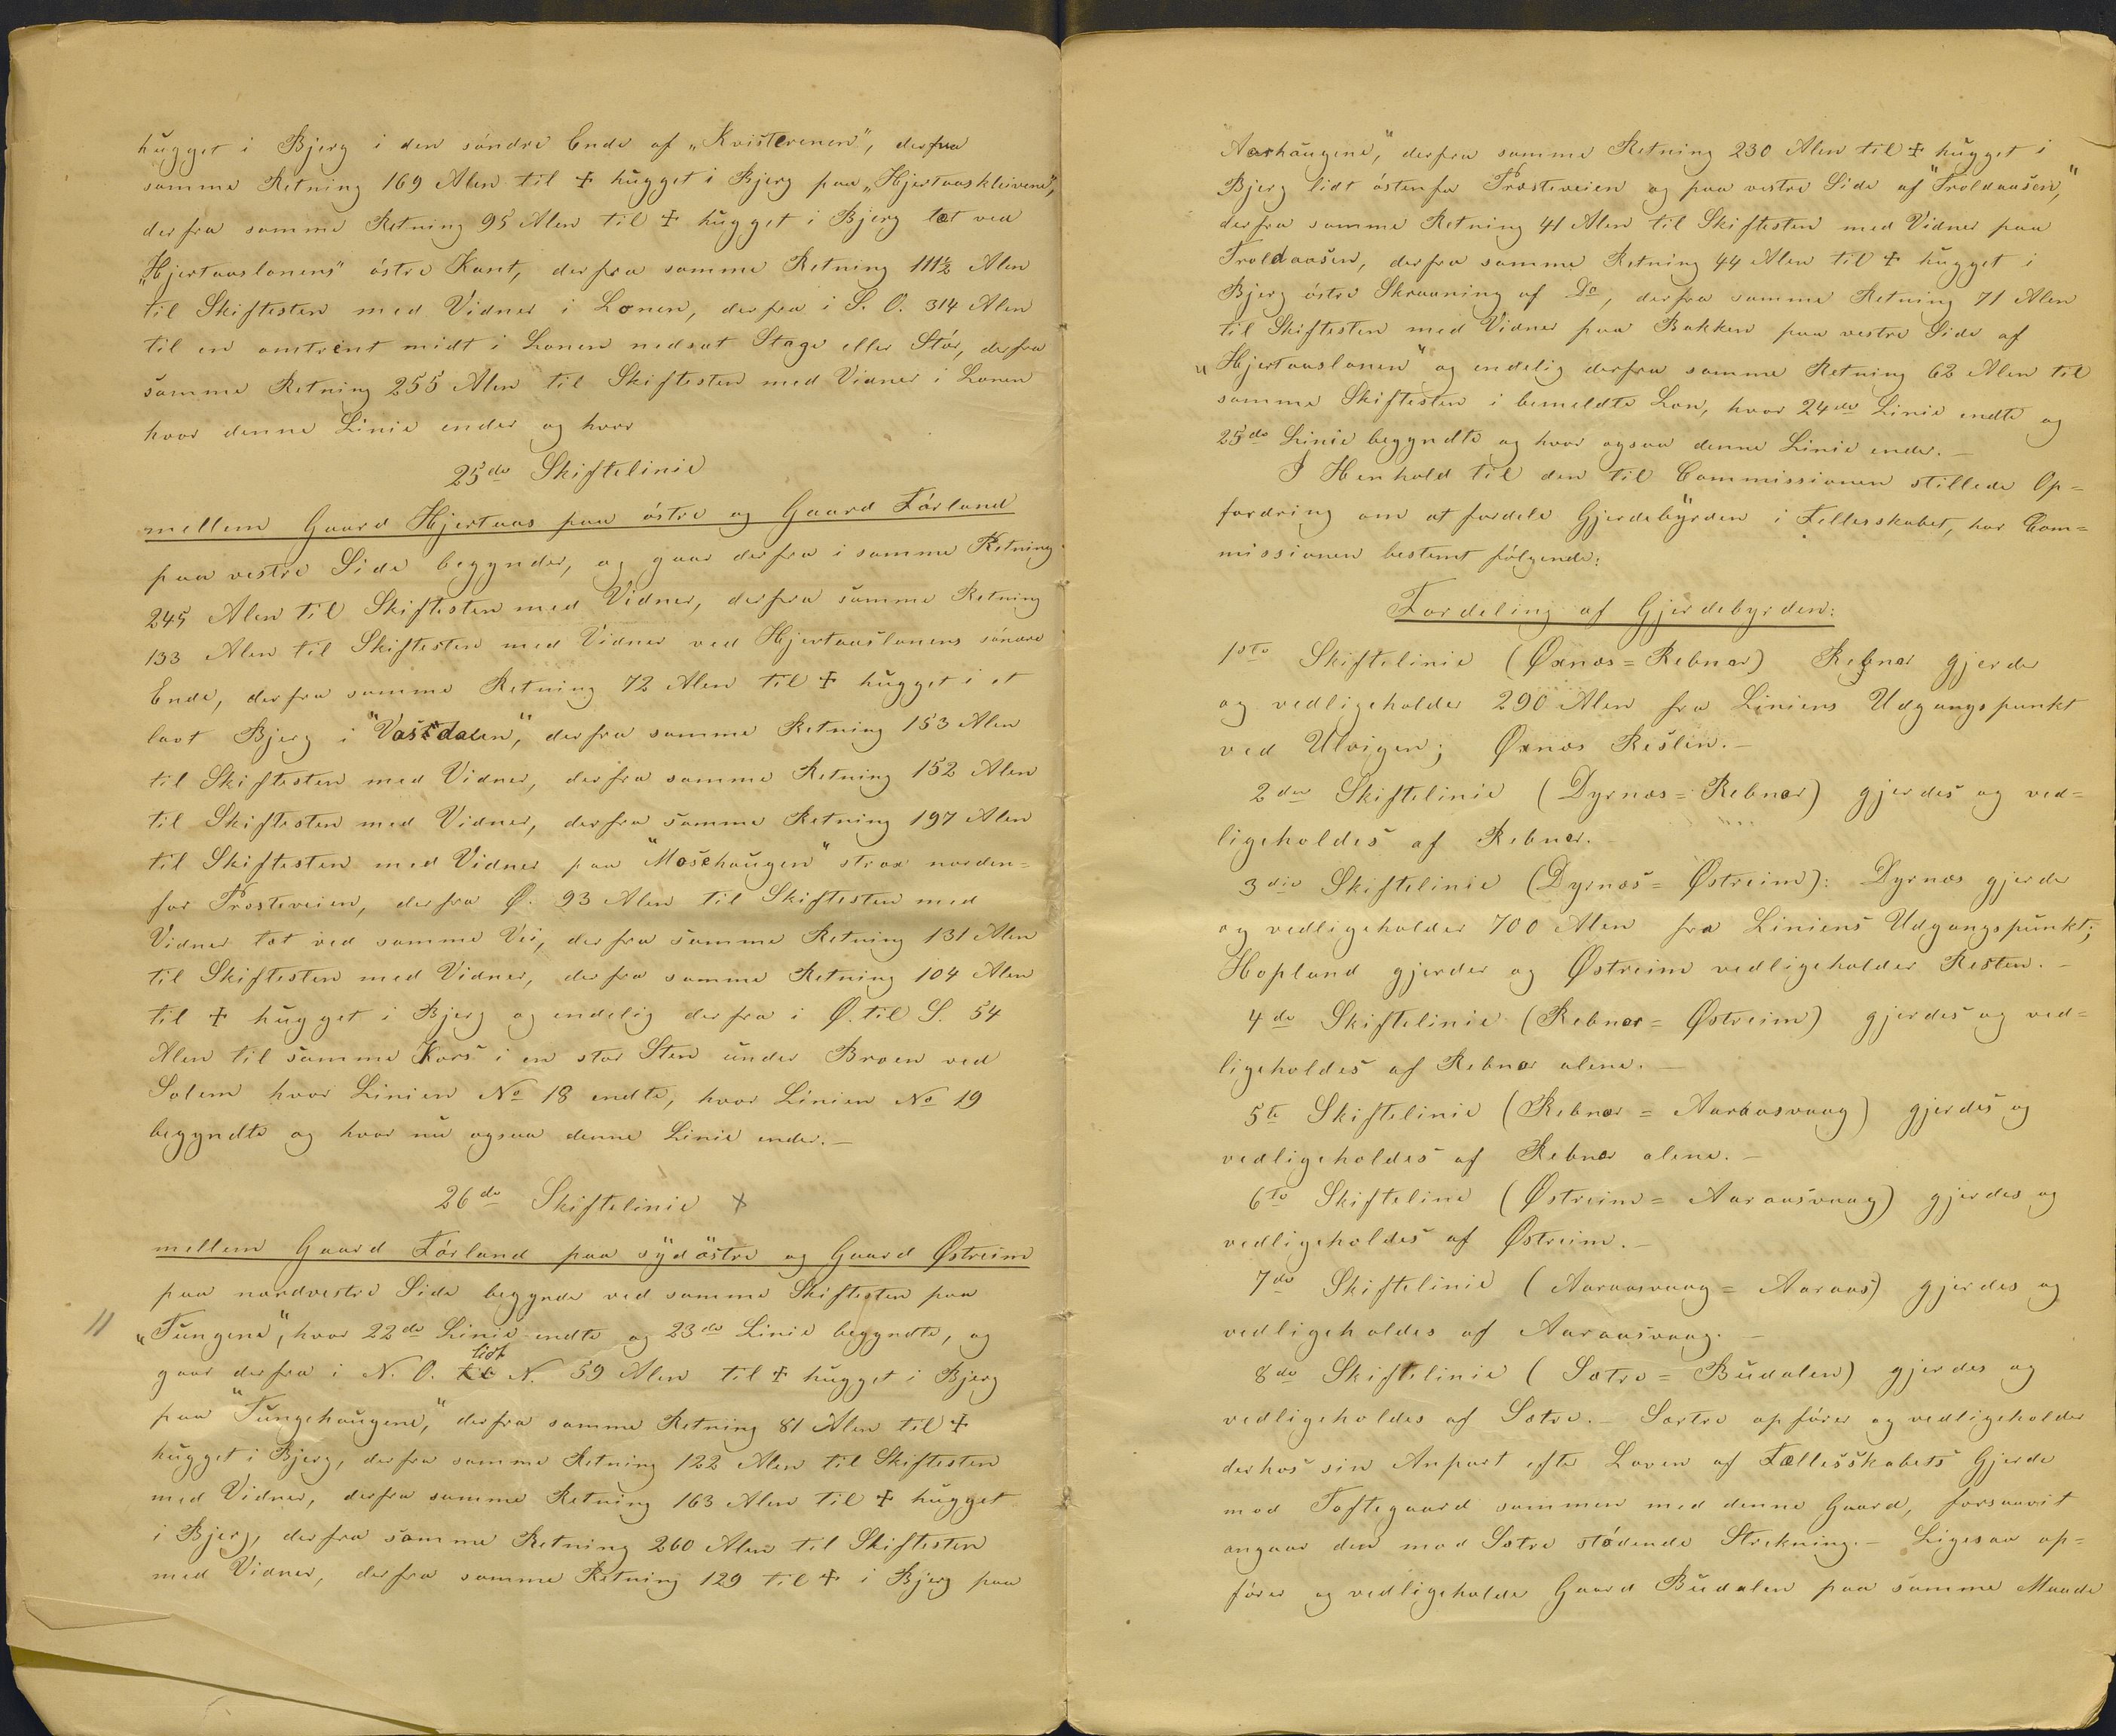 hugget i Bjerg i den søndre Ende af „Kvisterenen“, derfra
samme Retning 169 Alen til ☩ hugget i Bjerg paa „Hjertaaskleivene“,
derfra samme Retning 95 Alen til ☩ hugget i Bjerg tæt ved
„Hjertaaslonens“ østre Kant, derfra samme Retning 111½ Alen
til Skiftesten med Vidner i Lonen, derfra i S. O. 314 Alen
til en omtrent midt i Lonen nedsat Stage eller Stør, derfra
samme Retning 255 Alen til Skiftesten med Vidner i Lonen
hvor denne Linie ender og hvor
25de Skiftelinie
mellem Gaard Hjertaas paa østre og Gaard Førland
paa vestre Side begynder, og gaar derfra i samme Retning
245 Alen til Skiftesten med Vidner, derfra samme Retning
133 Alen til Skiftesten med Vidner ved Hjertaaslonens søndre
Ende, derfra samme Retning 72 Alen til ☩ hugget i et
lavt Bjerg i "Vassdalen", derfra samme Retning 153 Alen
til Skiftesten med Vidner, derfra samme Retning 152 Alen
til Skiftesten med Vidner, derfra samme Retning 197 Alen
til Skiftesten med Vidner paa "Mosehaugen" strax norden=
for Prosteveien, derfra Ø. 93 Alen til Skiftesten med
Vidner tæt ved samme Vei, derfra samme Retning 131 Alen
til Skiftesten med Vidner, derfra samme Retning 104 Alen
til ☩ hugget i Bjerg og endelig derfra i Ø. til S. 54
Alen til samme Kors i en stor Sten under Broen ved
Solem hvor Linien No 18 endte, hvor Linien No 19
begyndte og hvor nu ogsaa denne Linie ender.—
26de Skiftelinie x
mellem Gaard Førland paa sydøstre og Gaard Østreim
paa nordvestre Side begynder ved samme Skiftesten paa
11 „Tungene“, hvor 22de Linie endte og 23de Linie begyndte, og
lidt
gaar derfra i N. O. til N. 59 Alen til ☩ hugget i Bjerg
paa "Tungehaugene," derfra samme Retning 81 Alen til ☩
hugget i Bjerg, derfra samme Retning 122 Alen til Skiftesten
med Vidner, derfra samme Retning 163 Alen til ☩ hugget
i Bjerg, derfra samme Retning 260 Alen til Skiftesten
med Vidner, derfra samme Retning 129 til ☩ i Bjerg paa
"Aashaugene," derfra samme Retning 230 Alen til ☩ hugget i
Bjerg lidt østenfor Prosteveien og paa vestre Side af "Troldaasen,"
derfra samme Retning 41 Alen til Skiftesten med Vidner paa
Troldaasen, derfra samme Retning 44 Alen til ☩ hugget i
Bjerg østre Skraaning af Do, derfra samme Retning 71 Alen
til Skiftesten med Vidner paa Bakken paa vestre Side af
„Hjertaaslonen“ og endelig derfra samme Retning 62 Alen til
samme Skiftesten i bemeldte Lon, hvor 24de Linie endte og
25de Linie begyndte og hvor ogsaa denne Linie ender.—
I Henhold til den til Commissionen stillede Op=
fordring om at fordele Gjerdebyrden i Fellesskabet, har Com=
missionen bestemt følgende:
Fordeling af Gjerdebyrden:
1ste Skiftelinie (Øxnæs=Rebnor) Rebnor gjerder
og vedligeholder 290 Alen fra Liniens Udgangspunkt
ved Ulvigen; Øxnæs Resten.—
2den Skiftelinie (Dyrnæs=Rebnor) gjerdes og ved=
ligeholdes af Rebnor.
3die Skiftelinie (Dyrnæs=Østreim): Dyrnæs gjerder
og vedligeholder 700 Alen fra Liniens Udgangspunkt;
Hopland gjerder og Østreim vedligeholder Resten.—
4de Skiftelinie (Rebnor=Østreim) gjerdes og ved=
ligeholdes af Rebnor alene.—
5te Skiftelinie (Rebnor=Aaraasvaag) gjerdes og
vedligeholdes af Rebnor alene.—
6te Skifteline (Østreim=Aaraasvaag) gjerdes og
vedligeholdes af Østreim.—
7de Skiftelinie (Aaraasvaag=Aaraas) gjerdes og
vedligeholdes af Aaraasvaag.—
8de Skiftelinie (Sætre=Budalen) gjerdes og
vedligeholdes af Sætre.— Sætre opfører og vedligeholder
derhos sin Anpart efter Loven af Fællesskabets Gjerde
mod Toftegaard sammen med denne Gaard, forsaavit
angaar den mod Sætre stødende Strekning.— Ligesaa op=
fører og vedligeholder Gaard Budalen paa samme Maade